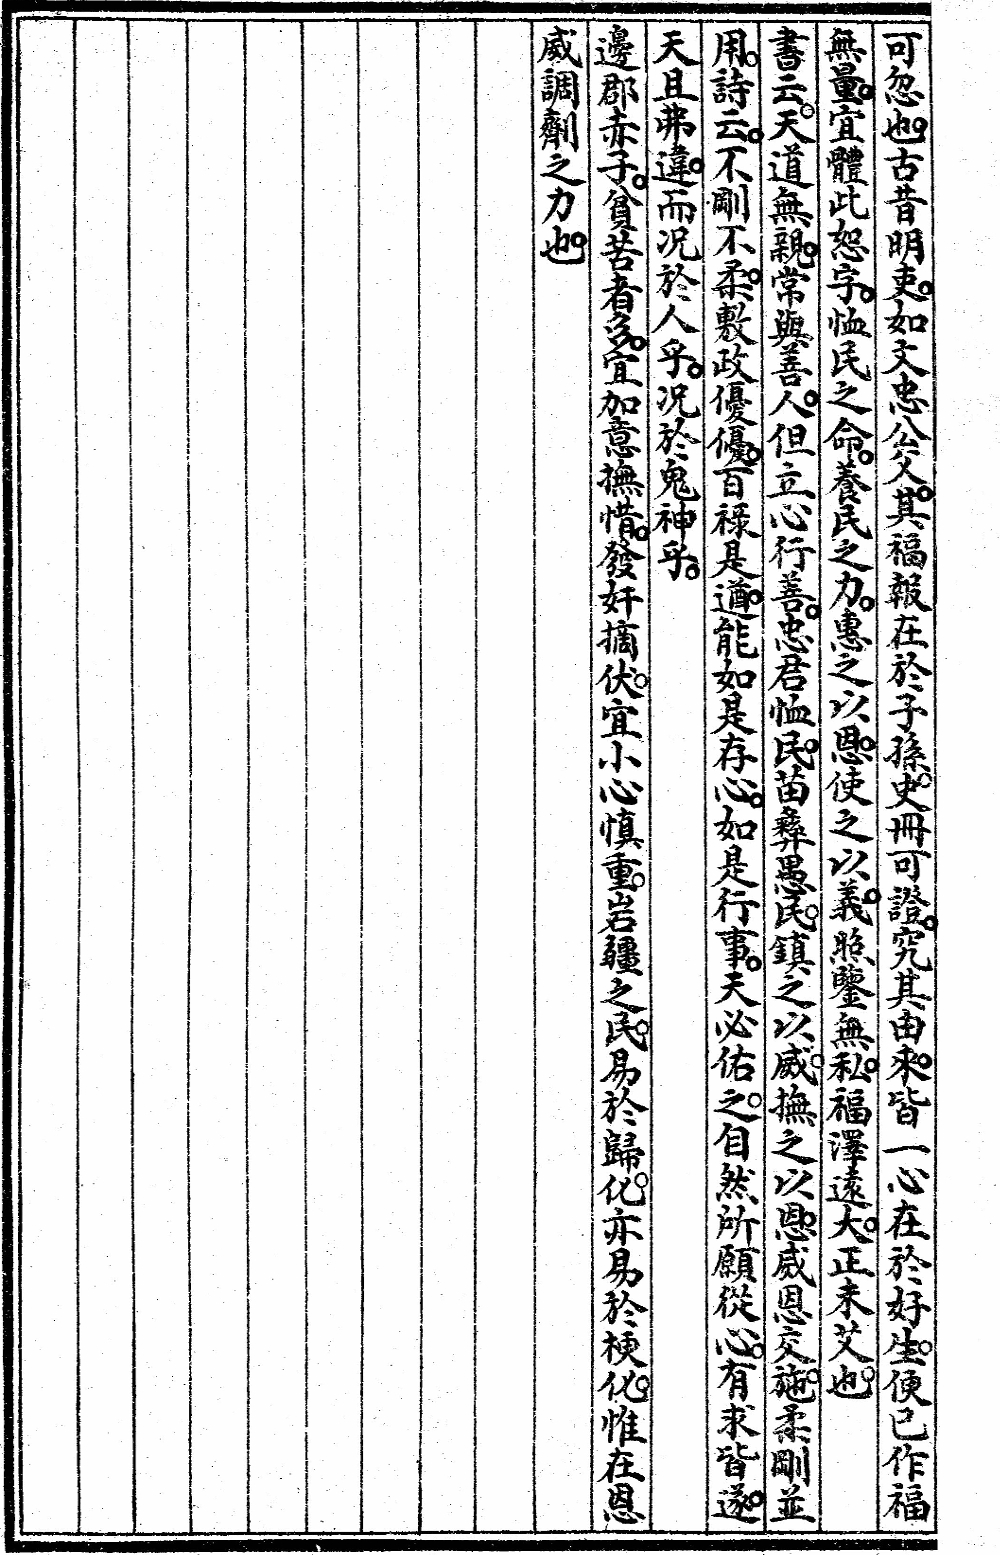 可忽也古昔明吏如文忠公父其福報在於子孫史冊可證究其由來皆一心在於好生便已作福
無量宜體此恕字恤民之命養民之力惠之以恩使之以義照鑒無私福澤遠大正未艾也
書云天道無親常與善人但立心行善忠君恤民苗彝愚民鎮之以威撫之以恩威恩交施柔剛並
用詩云不剛不柔敷政優優百祿是遒能如是存心如是行事天必佑之自然所願從心有求皆遂
天且弗違而况於人乎况於鬼神乎
邊郡赤子貧苦者多宜加意撫惜發奸摘伏宜小心慎重岩疆之民易於歸化亦易於梗化惟在恩
威調劑之力也